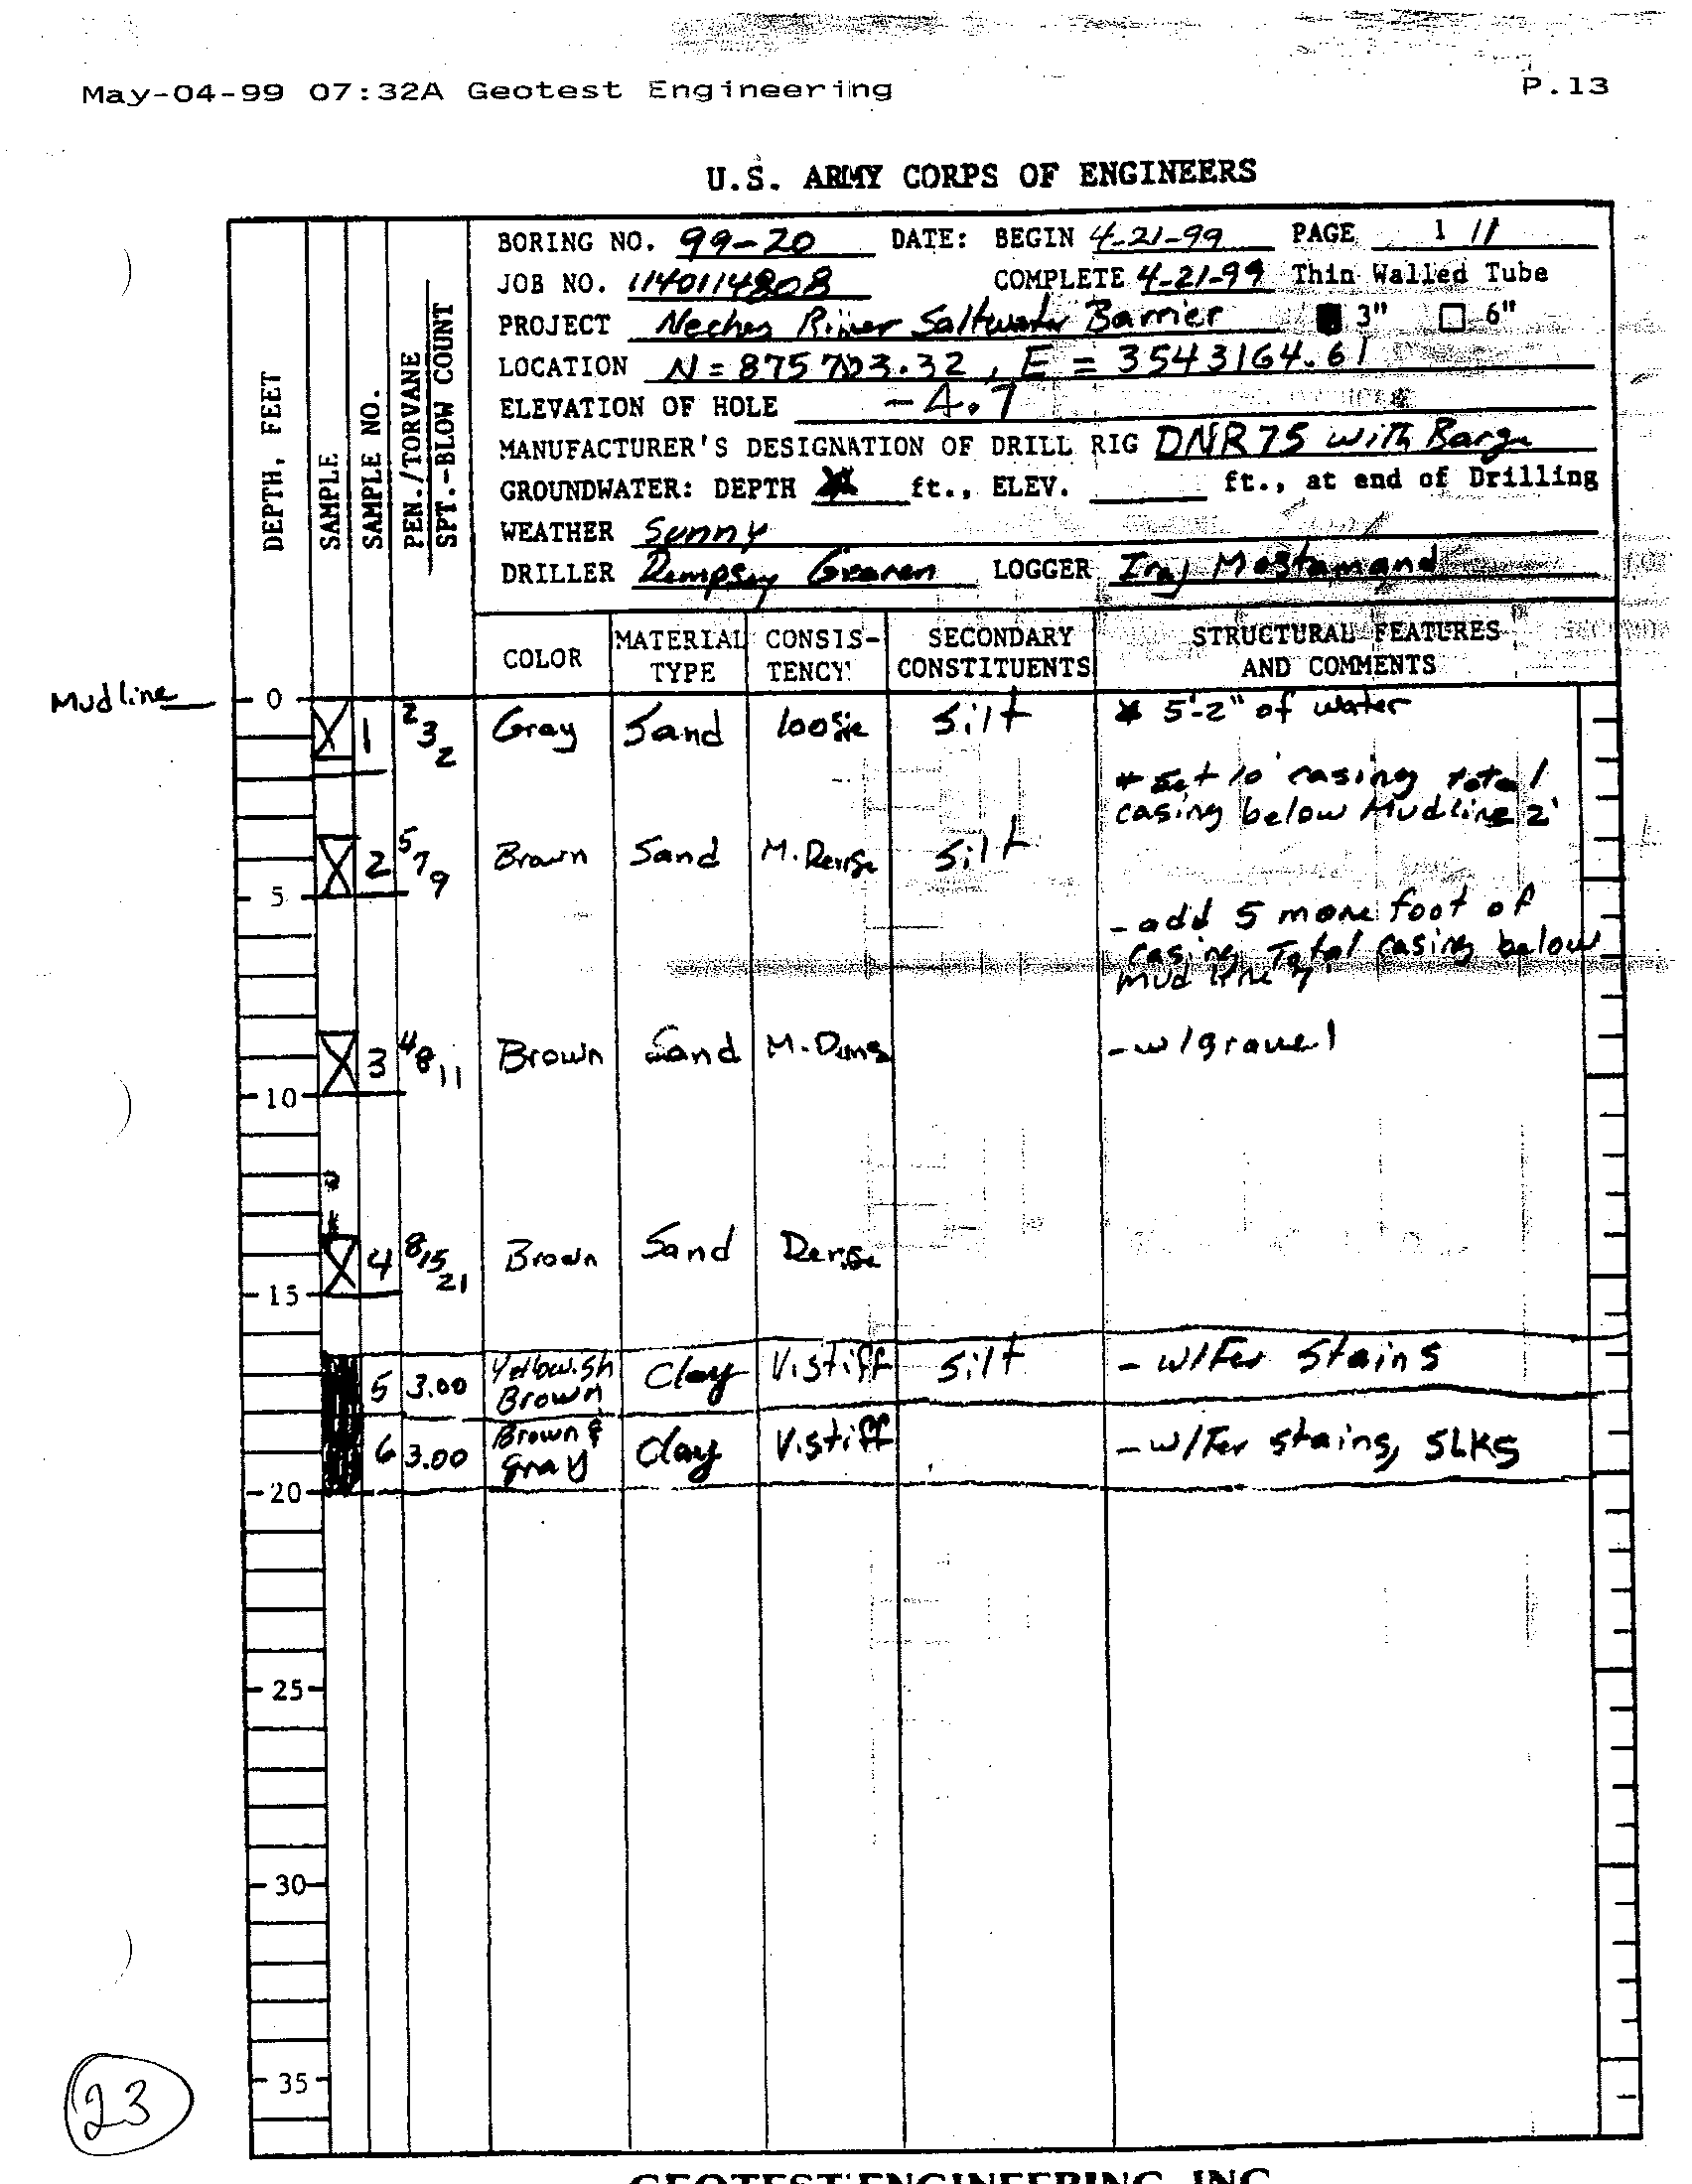 May-04-99 07:32A Geotest Engineering P.13
U.S. ARMY CORPS OF ENGINEERS
BORING NO. 99-20 DATE: BEGIN 4-21-99 PAGE 1 / 1
JOB NO. 1140114808 COMPLETE 4-21-99 Thin Walled Tube
PROJECT Neches River Saltwater Barrier 3" 6"
LOCATION N = 875703.32, E = 3543164.61
ELEVATION OF HOLE -4.7
MANUFACTURER'S DESIGNATION OF DRILL RIG DNR 75 with Barge
GROUNDWATER: DEPTH * ft., ELEV. ft., at end of Drilling
WEATHER Sunny
DRILLER Dempsey LOGGER Iraj Mostamand
DEPTH, FEET
SAMPLE
SAMPLE NO.
PEN./TORVANE
SPT.-BLOW COUNT
COLOR MATERIAL TYPE CONSISTENCY SECONDARY CONSTITUENTS STRUCTURAL FEATURES AND COMMENTS
Mudline 0
1 2 3 2 Gray Sand loose Silt * 5'-2" of water
* Set 10' casing total
casing below Mudline 2'
2 5 7 9 Brown Sand M. Dense Silt
5
- add 5 more foot of
casing Total casing below
mud line 7
3 4 8 11 Brown Sand M. Dens - w/gravel
10
4 8 15 21 Brown Sand Dense
15
5 3.00 Yellowish Brown Clay V.stiff Silt - w/Fer Stains
6 3.00 Brown & gray Clay V.stiff - w/Fer stains, SLKS
20
25
30
35
23
GEOTEST ENGINEERING, INC.